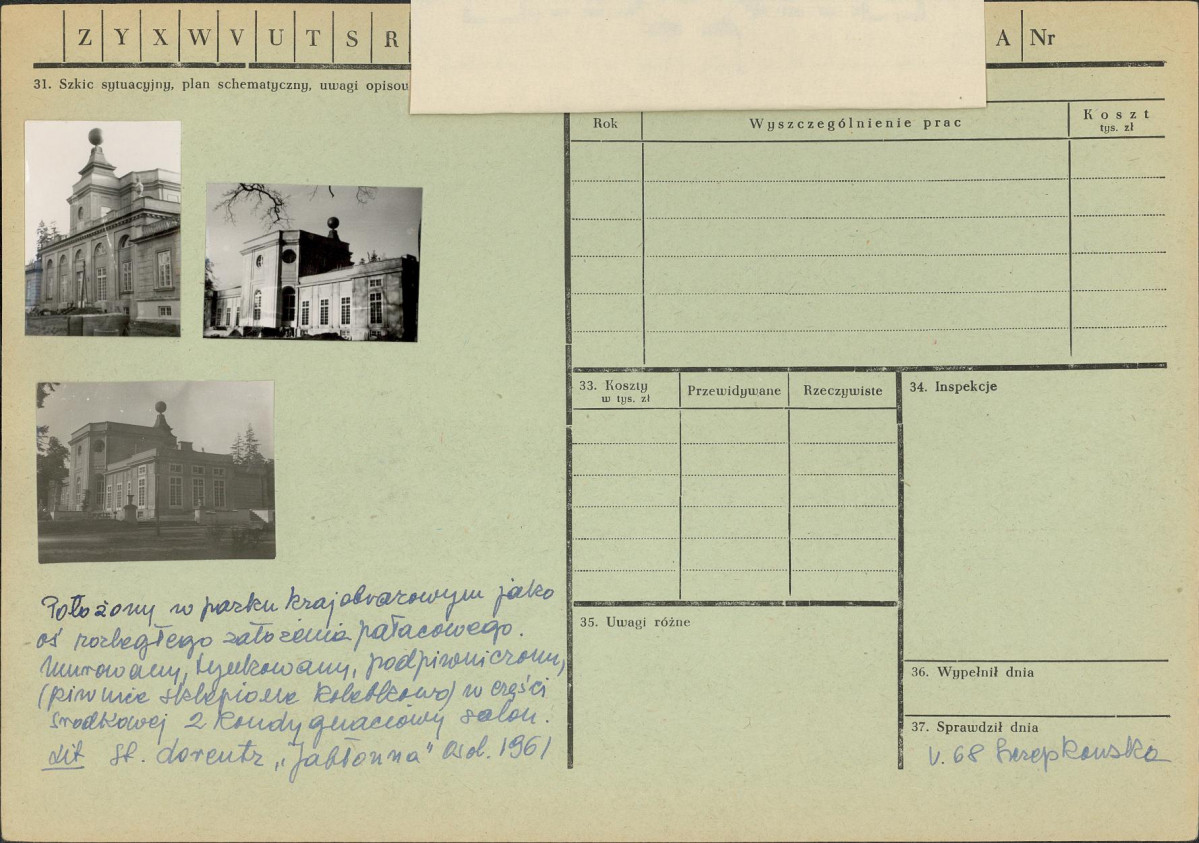 Z Y X W V U T S R
A Nr
31. Szkic sytuacyjny, plan schematyczny, uwagi opisow
Rok
Wyszczególnienie prac
Koszt
tys. zł
33. Koszty
w tys. zł
Przewidywane
Rzeczywiste
34. Inspekcje
35. Uwagi różne
36. Wypełnił dnia
37. Sprawdził dnia
V. 68
Położony w parku krajobrazowym jako
oś rozległego założenia pałacowego.
Murowany, tynkowany, podpiwniczony,
(piwnice sklepione kolebkowo) w części
środkowej 2 kondygnacjowy salon.
Lit St. Lorentz "Jabłonna" Osol. 1961